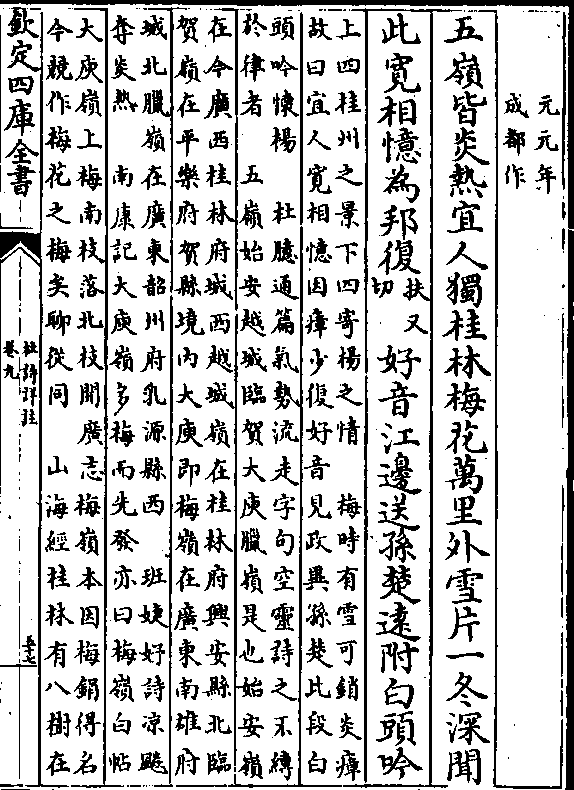 元元年
成都作
五嶺皆炎熱宜人獨桂林梅花萬里外雪片一冬深聞
此寛相憶為邦復扶又切好音江邊送孫楚遠附白頭吟
上四桂州之景下四寄楊之情　梅時有雪可銷炎瘴
故曰宜人寛相憶因瘴少復好音見政異孫楚比段白
頭吟懐楊　杜臆通篇氣勢流走字句空靈詩之不縛
於律者　五嶺始安越城臨賀大庾臘嶺是也始安嶺
在今廣西桂林府城西越城嶺在桂林府興安縣北臨
賀嶺在平樂府賀縣境内大庾即梅嶺在廣東南雄府
城北臘嶺在廣東韶州府乳源縣西　班婕妤詩凉飈
奪炎熱　南康記大庾嶺多梅而先發亦曰梅嶺白帖
大庾嶺上梅南枝落北枝開廣志梅嶺本因梅鋗得名
今競作梅花之梅矣聊從同　山海經桂林有八樹在
欽定四庫全書
杜詩詳註
卷九
五十七